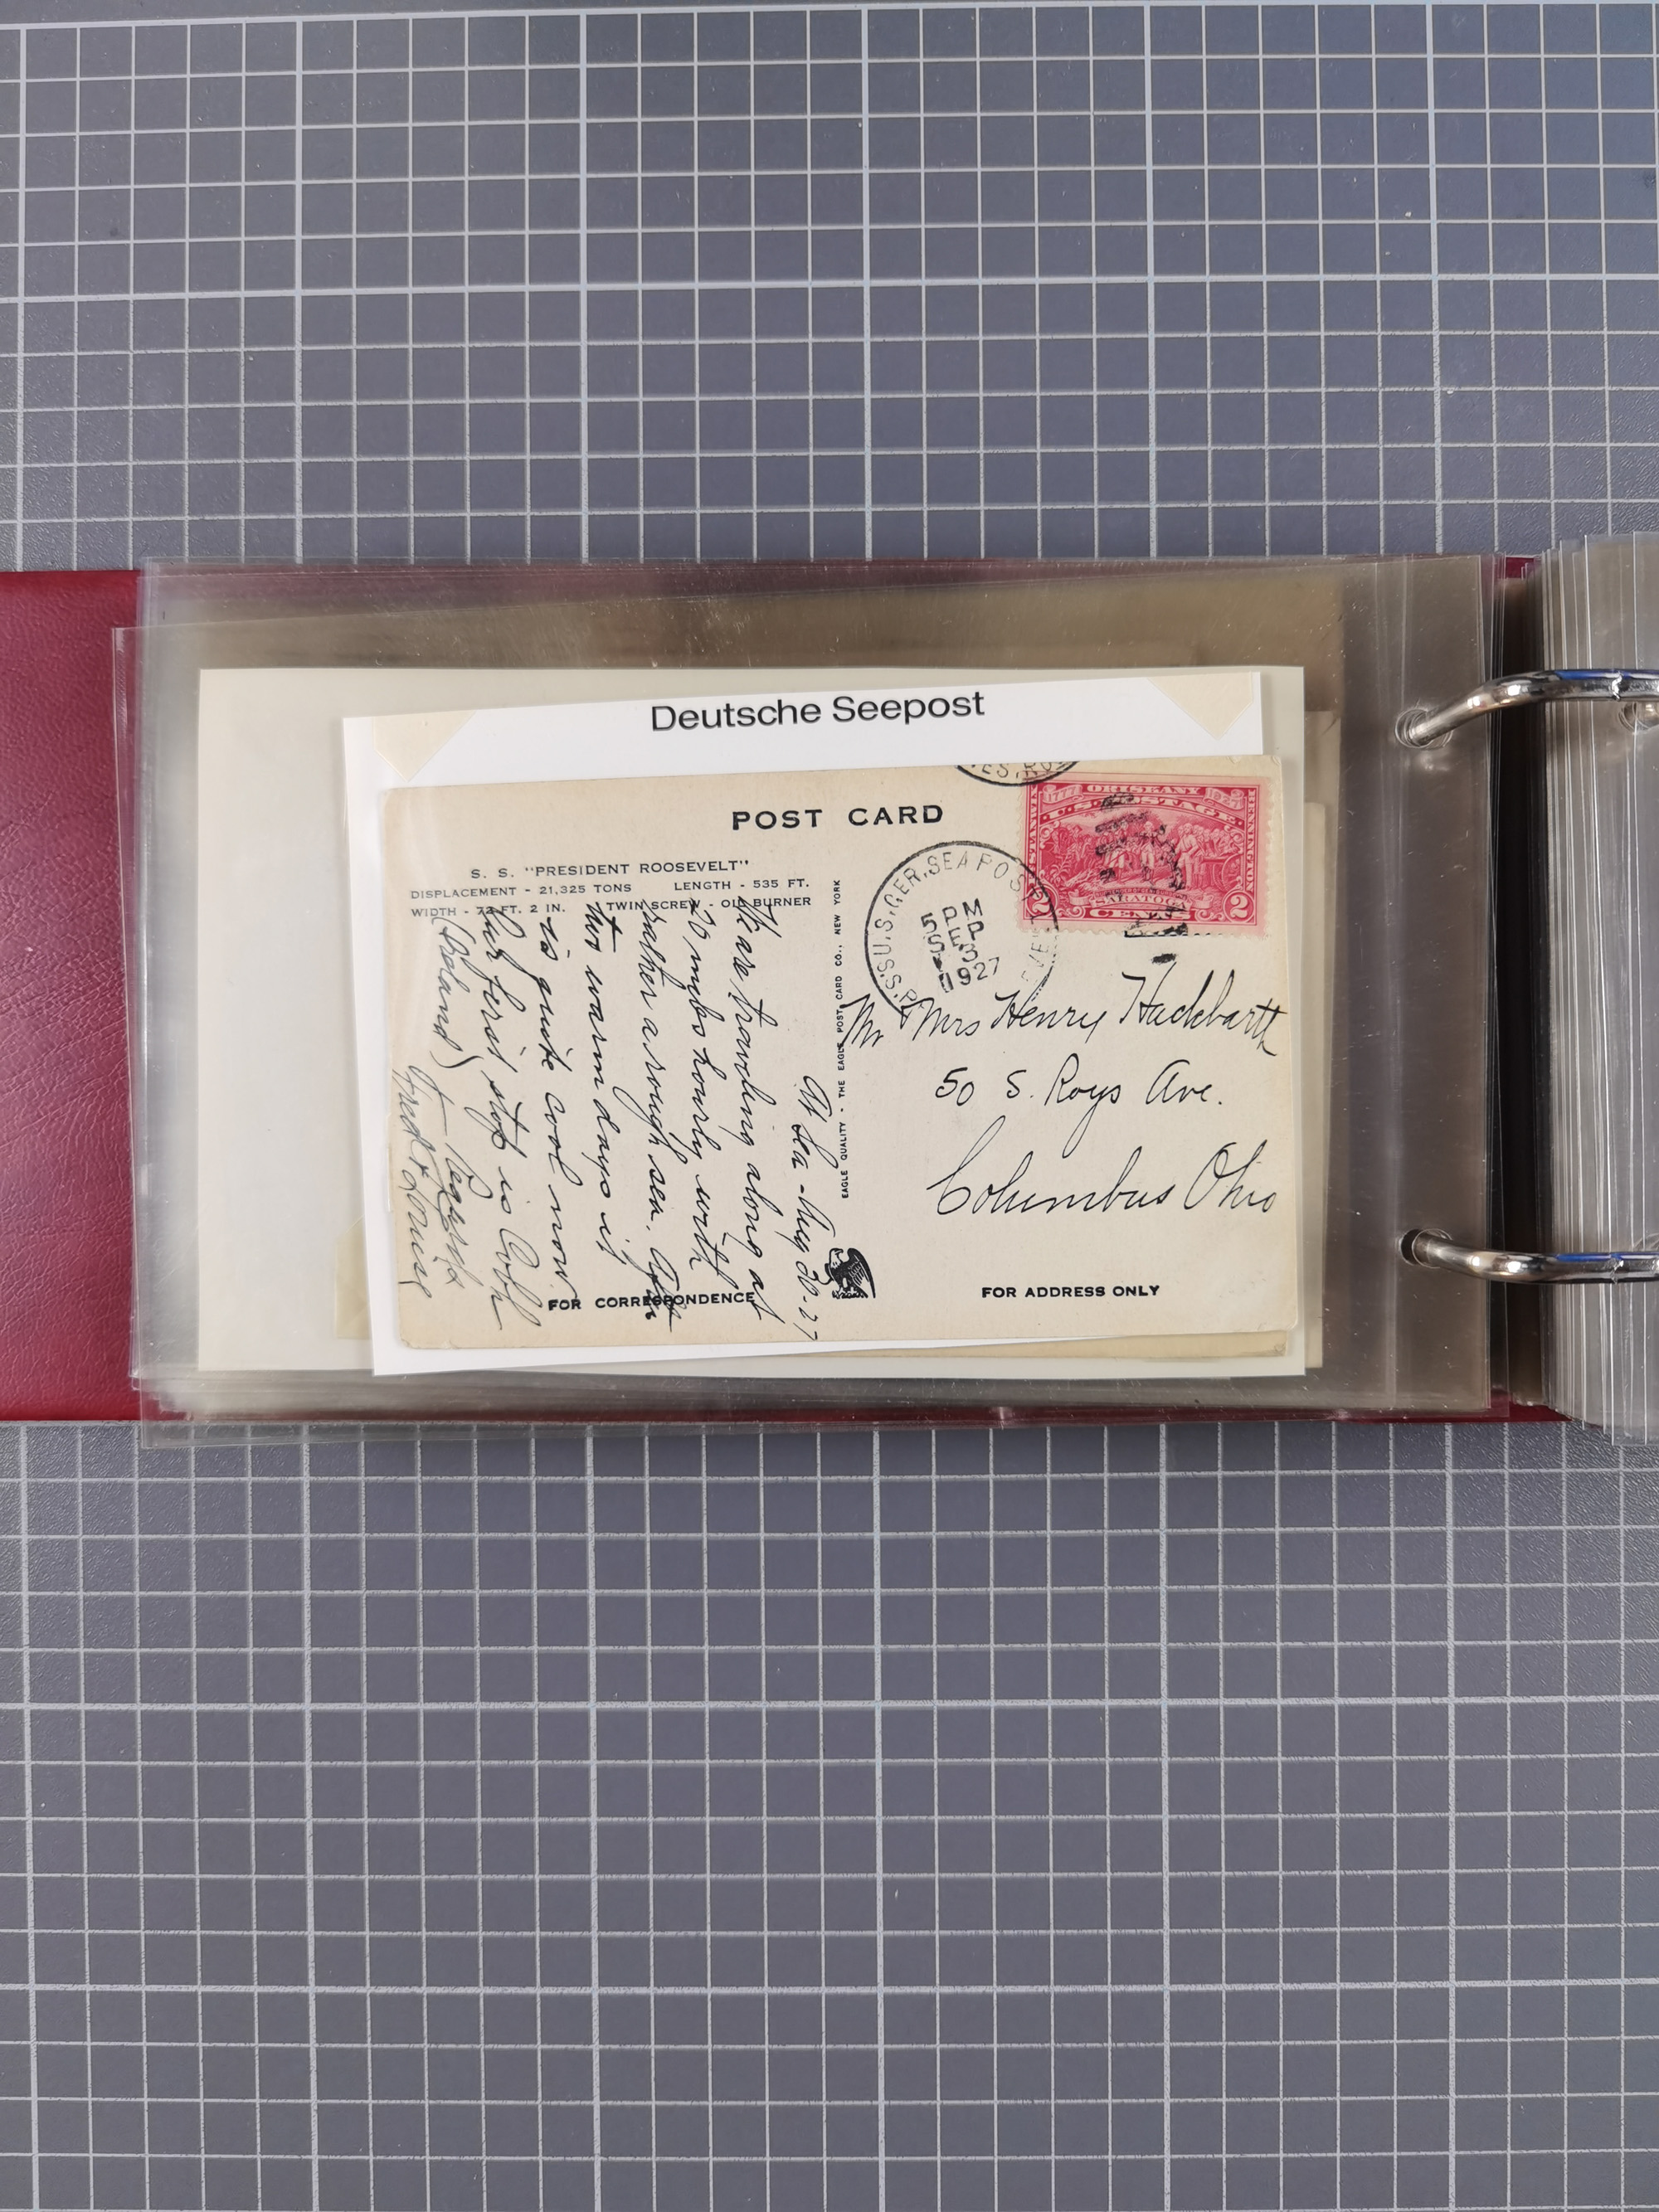 Deutsche Seepost
POST CARD
S. S. "PRESIDENT ROOSEVELT"
DISPLACEMENT - 21,325 TONS LENGTH - 535 FT.
WIDTH - 72 FT. 2 IN. TWIN SCREW - OIL BURNER
At Sea - Aug 30-27
We are traveling along at
20 miles hourly with
rather a rough sea. After
two warm days it
is quite cool now.
Our first stop is Cobh
(Ireland)
Fred & Louise
FOR CORRESPONDENCE
EAGLE QUALITY - THE EAGLE POST CARD CO., NEW YORK
U.S. GER. SEA POST
S.S. P
EVE
5 PM
SEP
3
1927
1777 ORISKANY 1927
U.S. POSTAGE
BENNINGTON
SARATOGA
2 CENTS 2
Mr & Mrs Henry Hackbarth
50 S. Roys Ave.
Columbus Ohio
FOR ADDRESS ONLY